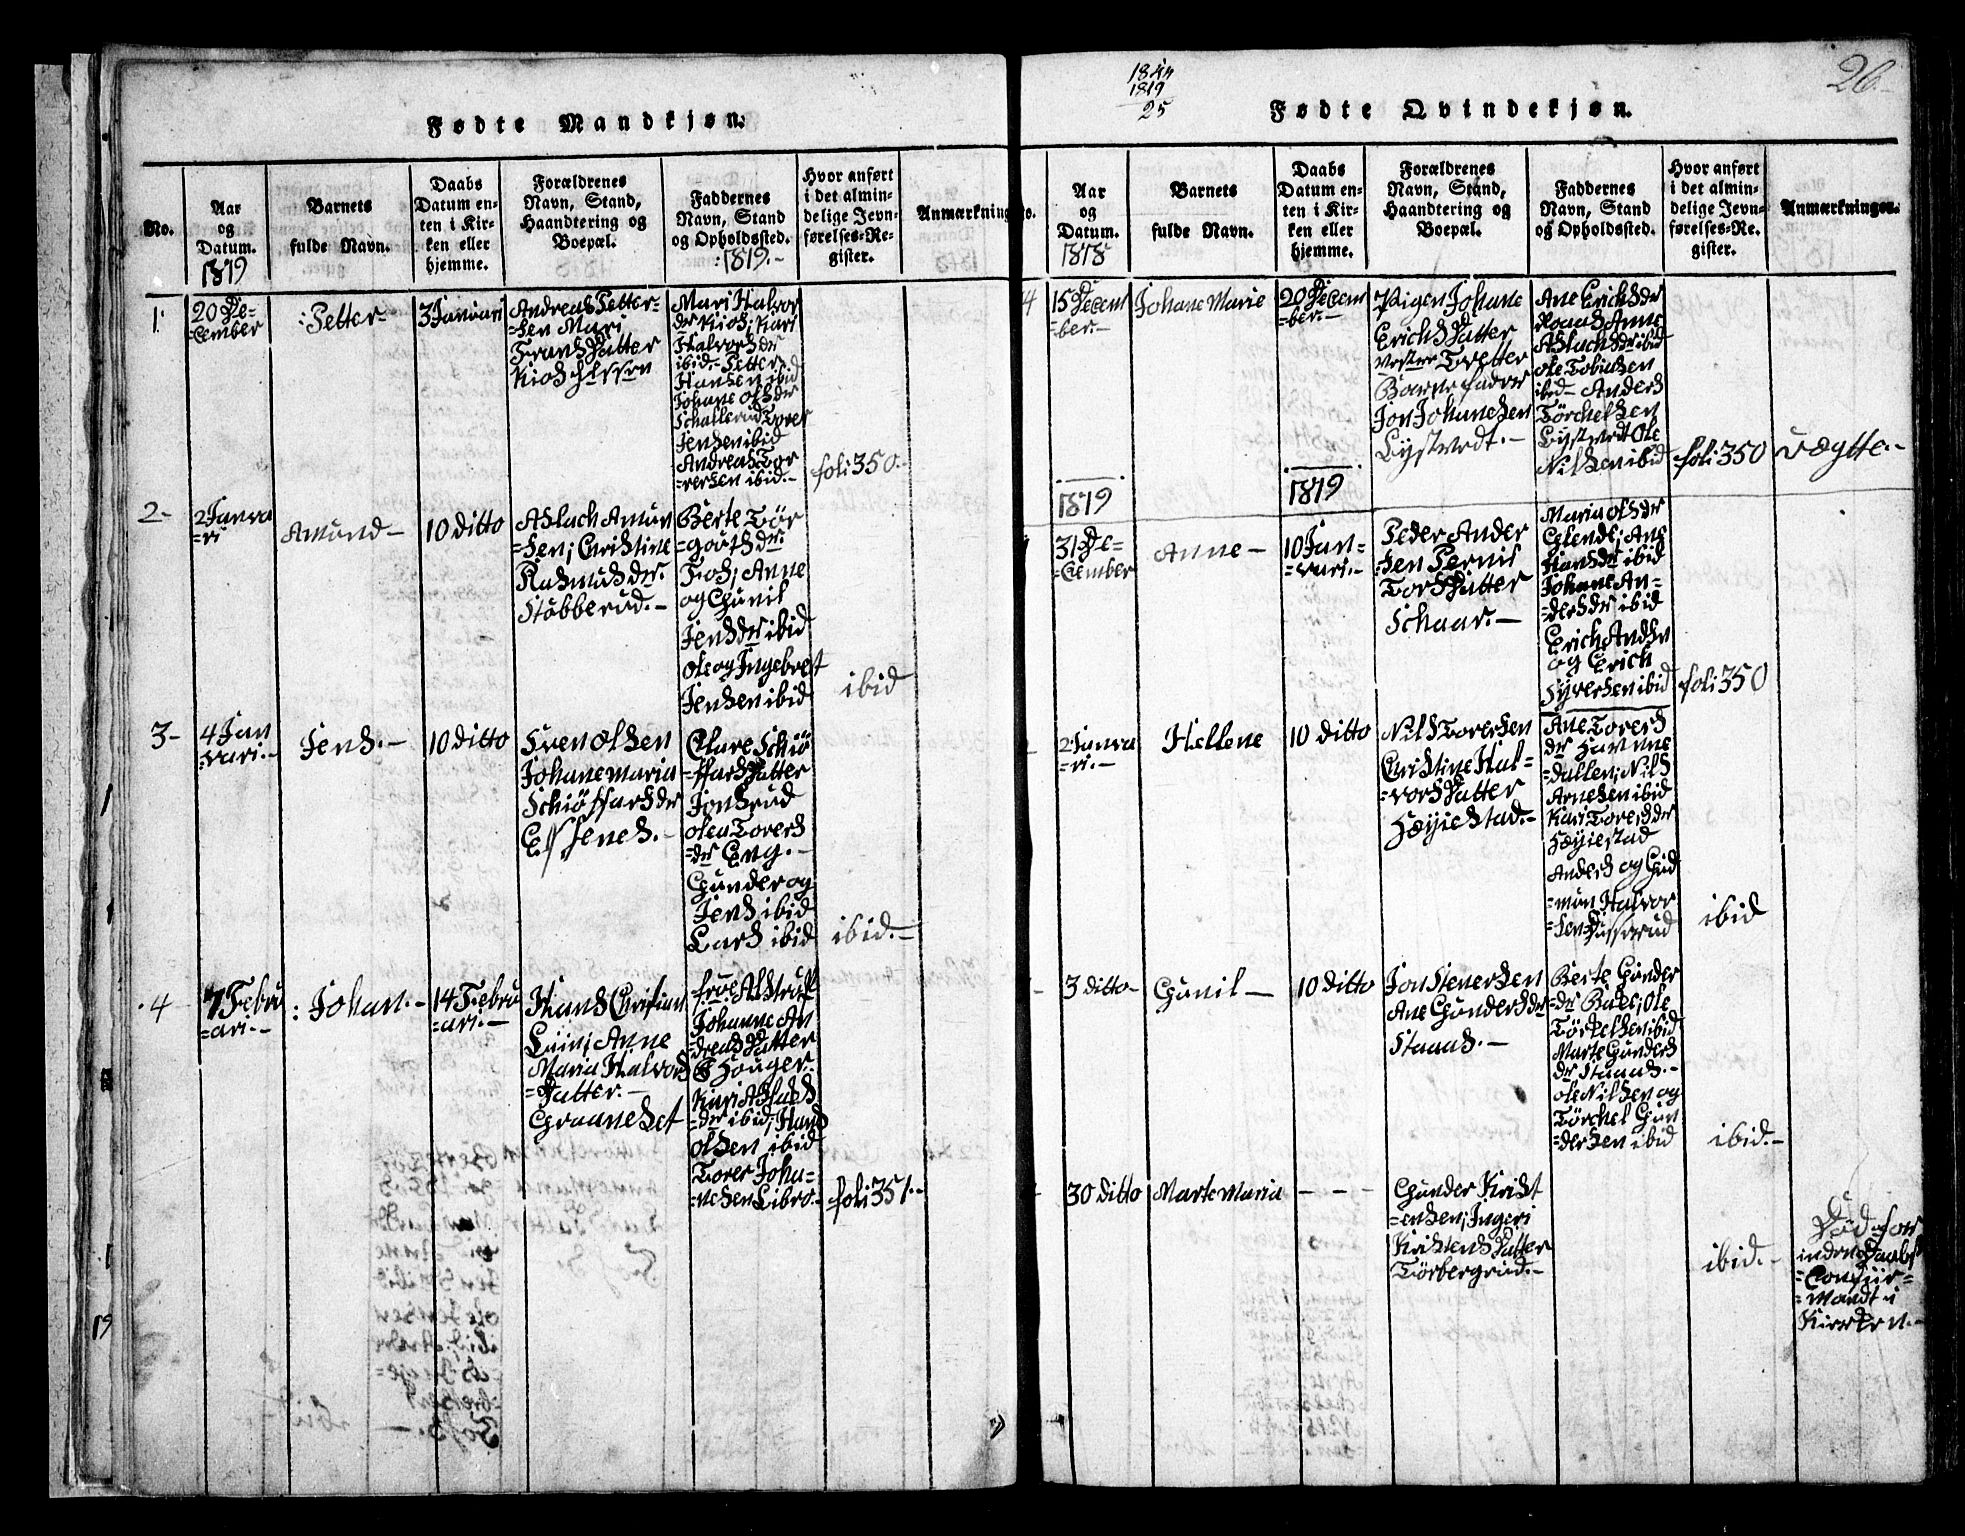 Fødte Mandkjøn.
No.
Aar
og
Datum.
1819
Barnets
fulde Navn.
Daabs
Datum en-
ten i Kir-
ken eller
hjemme.
Forældrenes
Navn, Stand,
Haandtering og
Boepæl.
Faddernes
Navn, Stand
og Opholdssted.
:1819.-
Hvor anført
i det almin-
delige Jevn-
førelses-Re-
gister.
Anmærkning
1.
20 De-
=cember
:Petter-
3 Januari
Andreas Petter-
=sen Mari
Frands Datter
Kios
Mari Halvor
ds Kios; Kari
Halvorsdr
ibid.- Petter
Hansen ibid
Johane Olsdr
Schallerud Torer
Jensen ibid
Andreas Tor
rersen ibid.-
foli 350.-
2-
2 Janva
=ri
Amund-
10 ditto
Aslach Amun
=sen; Cristine
Rasmusdr.
Stubberud.-
Berte Tør
=
Fos; Anne
og Gunil
Jensdr ibid
Ole og Ingebret
Jensen ibid
ibid
3-
4 Jan
=vari.-
Jens.-
10 ditto
Sven Olsen
Johanemaria
Schiøffarsdr
Clare Schiø
=ffars Datter
Jonsrud
Olea Torers
=dr Eng.-
Gunder og
Jens ibid
Lars ibid
ibid.-
4
7 Febru
=ari.-
: Johan.-
14 Febru
=ari.-
Hans Christian
Anne
Maria Halvors
=Datter.-
Graaneset
Johanne An
dreas Datter
Kari Aslaks
=dr ibid; Hans
Olsen ibid
Torer Joha-
=nesen Libro.-
foli 351.-
1844
1819
25
Fødte Qvindekjøn.
26.
No.
Aar
og
Datum.
1818
Barnets
fulde Navn.
Daabs
Datum en-
ten i Kir-
ken eller
hjemme.
Forældrenes
Navn, Stand,
Haandtering og
Boepæl.
Faddernes
Navn, Stand
og Opholdssted.
Hvor anført
i det almin-
delige Jevn-
førelses-Re-
gister.
Anmærkninger.
4
15 Decem
=ber.-
Johane Marie
20 Decem
=ber.-
Pigen Johane
Erichs Datter
Barnefader
Jon Johanesen
Lystvedt.-
Ane Erichsdr
Roaas Anne
Aslachsdr ibid
Ole Tobiesen
ibid- Anders
Tørchelsen
Lystvedt Ole
Nilsen ibid
foli 350
uægtte.-
1819
1819
31 De-
=cember
Anne-
10 Jan-
=vari.-
Peder Ander
sen Pernil
Tors Datter
Schaar.-
Maria Olsdr
Glende; Ane
Hansdr ibid
Johane An-
=dersdr ibid
Erich Andsen
og Erich
Syversen ibid
foli 350
2 Janva
=ri.-
Hellene
10 ditto
Nils Torersen
Cristine Hal-
=vors Datter
Høyiestad.-
Ane Torers
dr
dallen; Nils
Arnesen ibid
Kari Torersdr
Høyiestad
Anders og Gud
=mun Halvor
ibid
3 ditto-
Gunil-
10 ditto
Jon Stenersen
Ane Gundersdr
Staaas.-
Berte Gunder
=dr Ole
Tørkelsen ibid
Marte Gunders
dr Staaas.-
Ole Nilsen og
Tørchel Gun
=dersen ibid
ibid.-
30 ditto
Marte Maria
- - -
Gunder Krist
=ensen; Ingeri
Kristens Datter
Tørbergrud.-
ibid.-
Død for
inden Daabs
=Confir=
=mandt i
Kirken.-